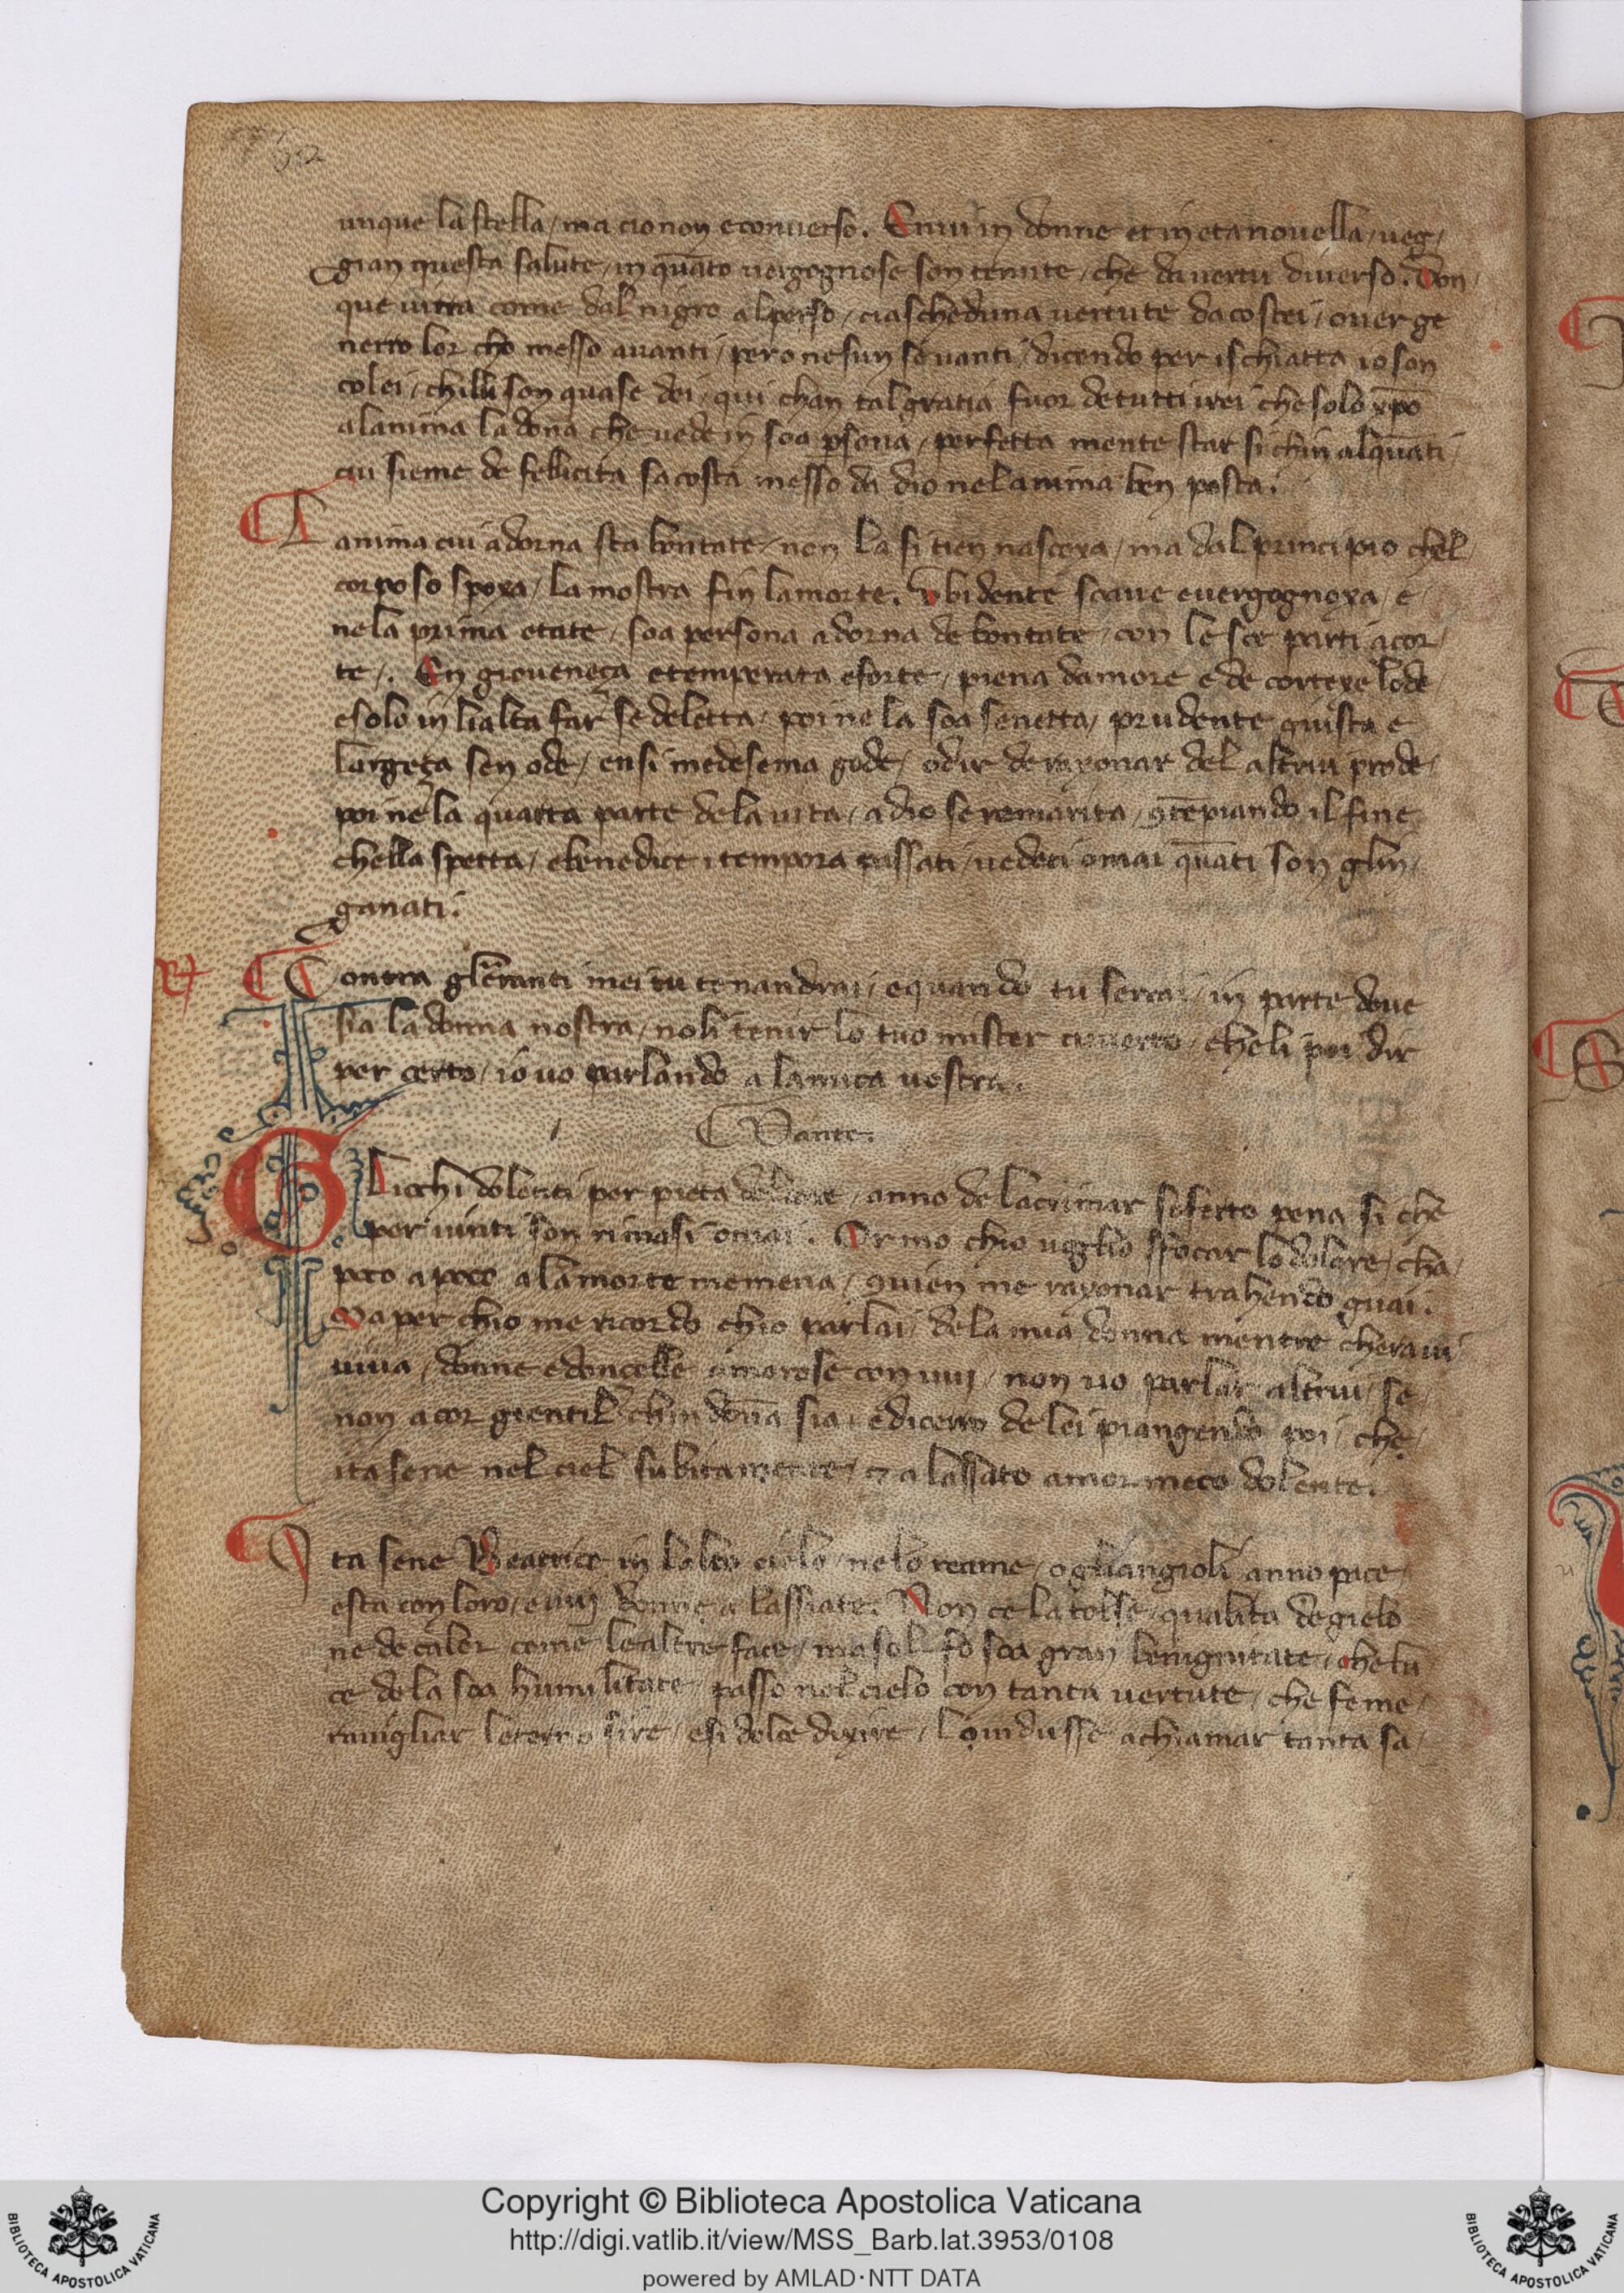 52
unque la stella / ma cio non econuerso. Enuui in donne et in eta nouella / ueg /
gian questa salute / in quāto uergognose son tenute / che da uertu diuerso. Don /
que uirra come dal nigro al perso / ciascheduna uertute da costei / ouer ge
nerro lor cho messo auanti / pero nesun se uanti / dicendo per ischiatta io son
colei / chilli son quase dei / qui chan tal gratia fuor de tutti irei che solo xp̄o
alanima la dona che uede in soa p̱sona / perfetta mente star si chin alquāti /
cui sieme de fellicita sacosta messo da dio nelanima ben posta.
L anima cui adorna sta bontate / non la si tien nascoxa / ma dal principio chel /
corpo so spoxa / la mostra fin lamorte. Vbidente soaue euergognoxa / e
nela prima etate / soa persona adorna de bontate / con le soe parti acor /
te /. En gioueneça etemperata eforte / piena damore e de cortexe lode /
esolo in lialta far se deletta / poi ne la soa senetta / prudente giusta e
largeça sen ode / ensi medesema gode / odir de raxonar del altrui prode /
poi ne la quarta parte dela uita / a dio se remarita / 9tēpiando il fine
chella spetta / ebenedice i tempora passati / uedeti omai quāti son glin /
ganati.
R̷ C ontra glierranti mei tu tenandrai / equando tu serrai / in parte doue
sia la donna nostra / noli tenir lo tuo mister couerto / cheli poi dir
per certo / io uo parlando alamica uostra.
Dante.
G Liocchi dolenti per pieta delcore / anno de lacrimar soferto pena si che
per uinti son rimasi omai. Or mo chio uoglio sfocar lo dolore / cha /
poco a poco alamorte memena / 9uien me raxonar trahendo guai.
Ma per chio me ricordo chio parlai / dela mia donna mentre cheraui
uiua / donne e doncelle amorose con uui / non uo parlar altrui / se /
non acor gientil chin dōna sia / e dicerro de lei piangendo poi / che /
ita sene nel ciel subitamente / 7 a lassato amor meco dolente.
I ta sene Beatrice in lalto cielo / nelo reame / ogliangioli anno pace /
esta con loro / e uui donne a lassiate. Non ce la tolse / qualita de gielo
ne de calor come lealtre face / ma sol fo soa gran benignitate / che lu
ce dela soa humilitate passo nel cielo con tanta uertute / che feme /
rauigliar leterno sire / esi dolce dixire / lo indusse achiamar tanta sa /
Copyright © Biblioteca Apostolica Vaticana
http://digi.vatlib.it/view/MSS_Barb.lat.3953/0108
powered by AMLAD·NTT DATA
BIBLIOTECA APOSTOLICA VATICANA
BIBLIOTECA APOSTOLICA VATICANA